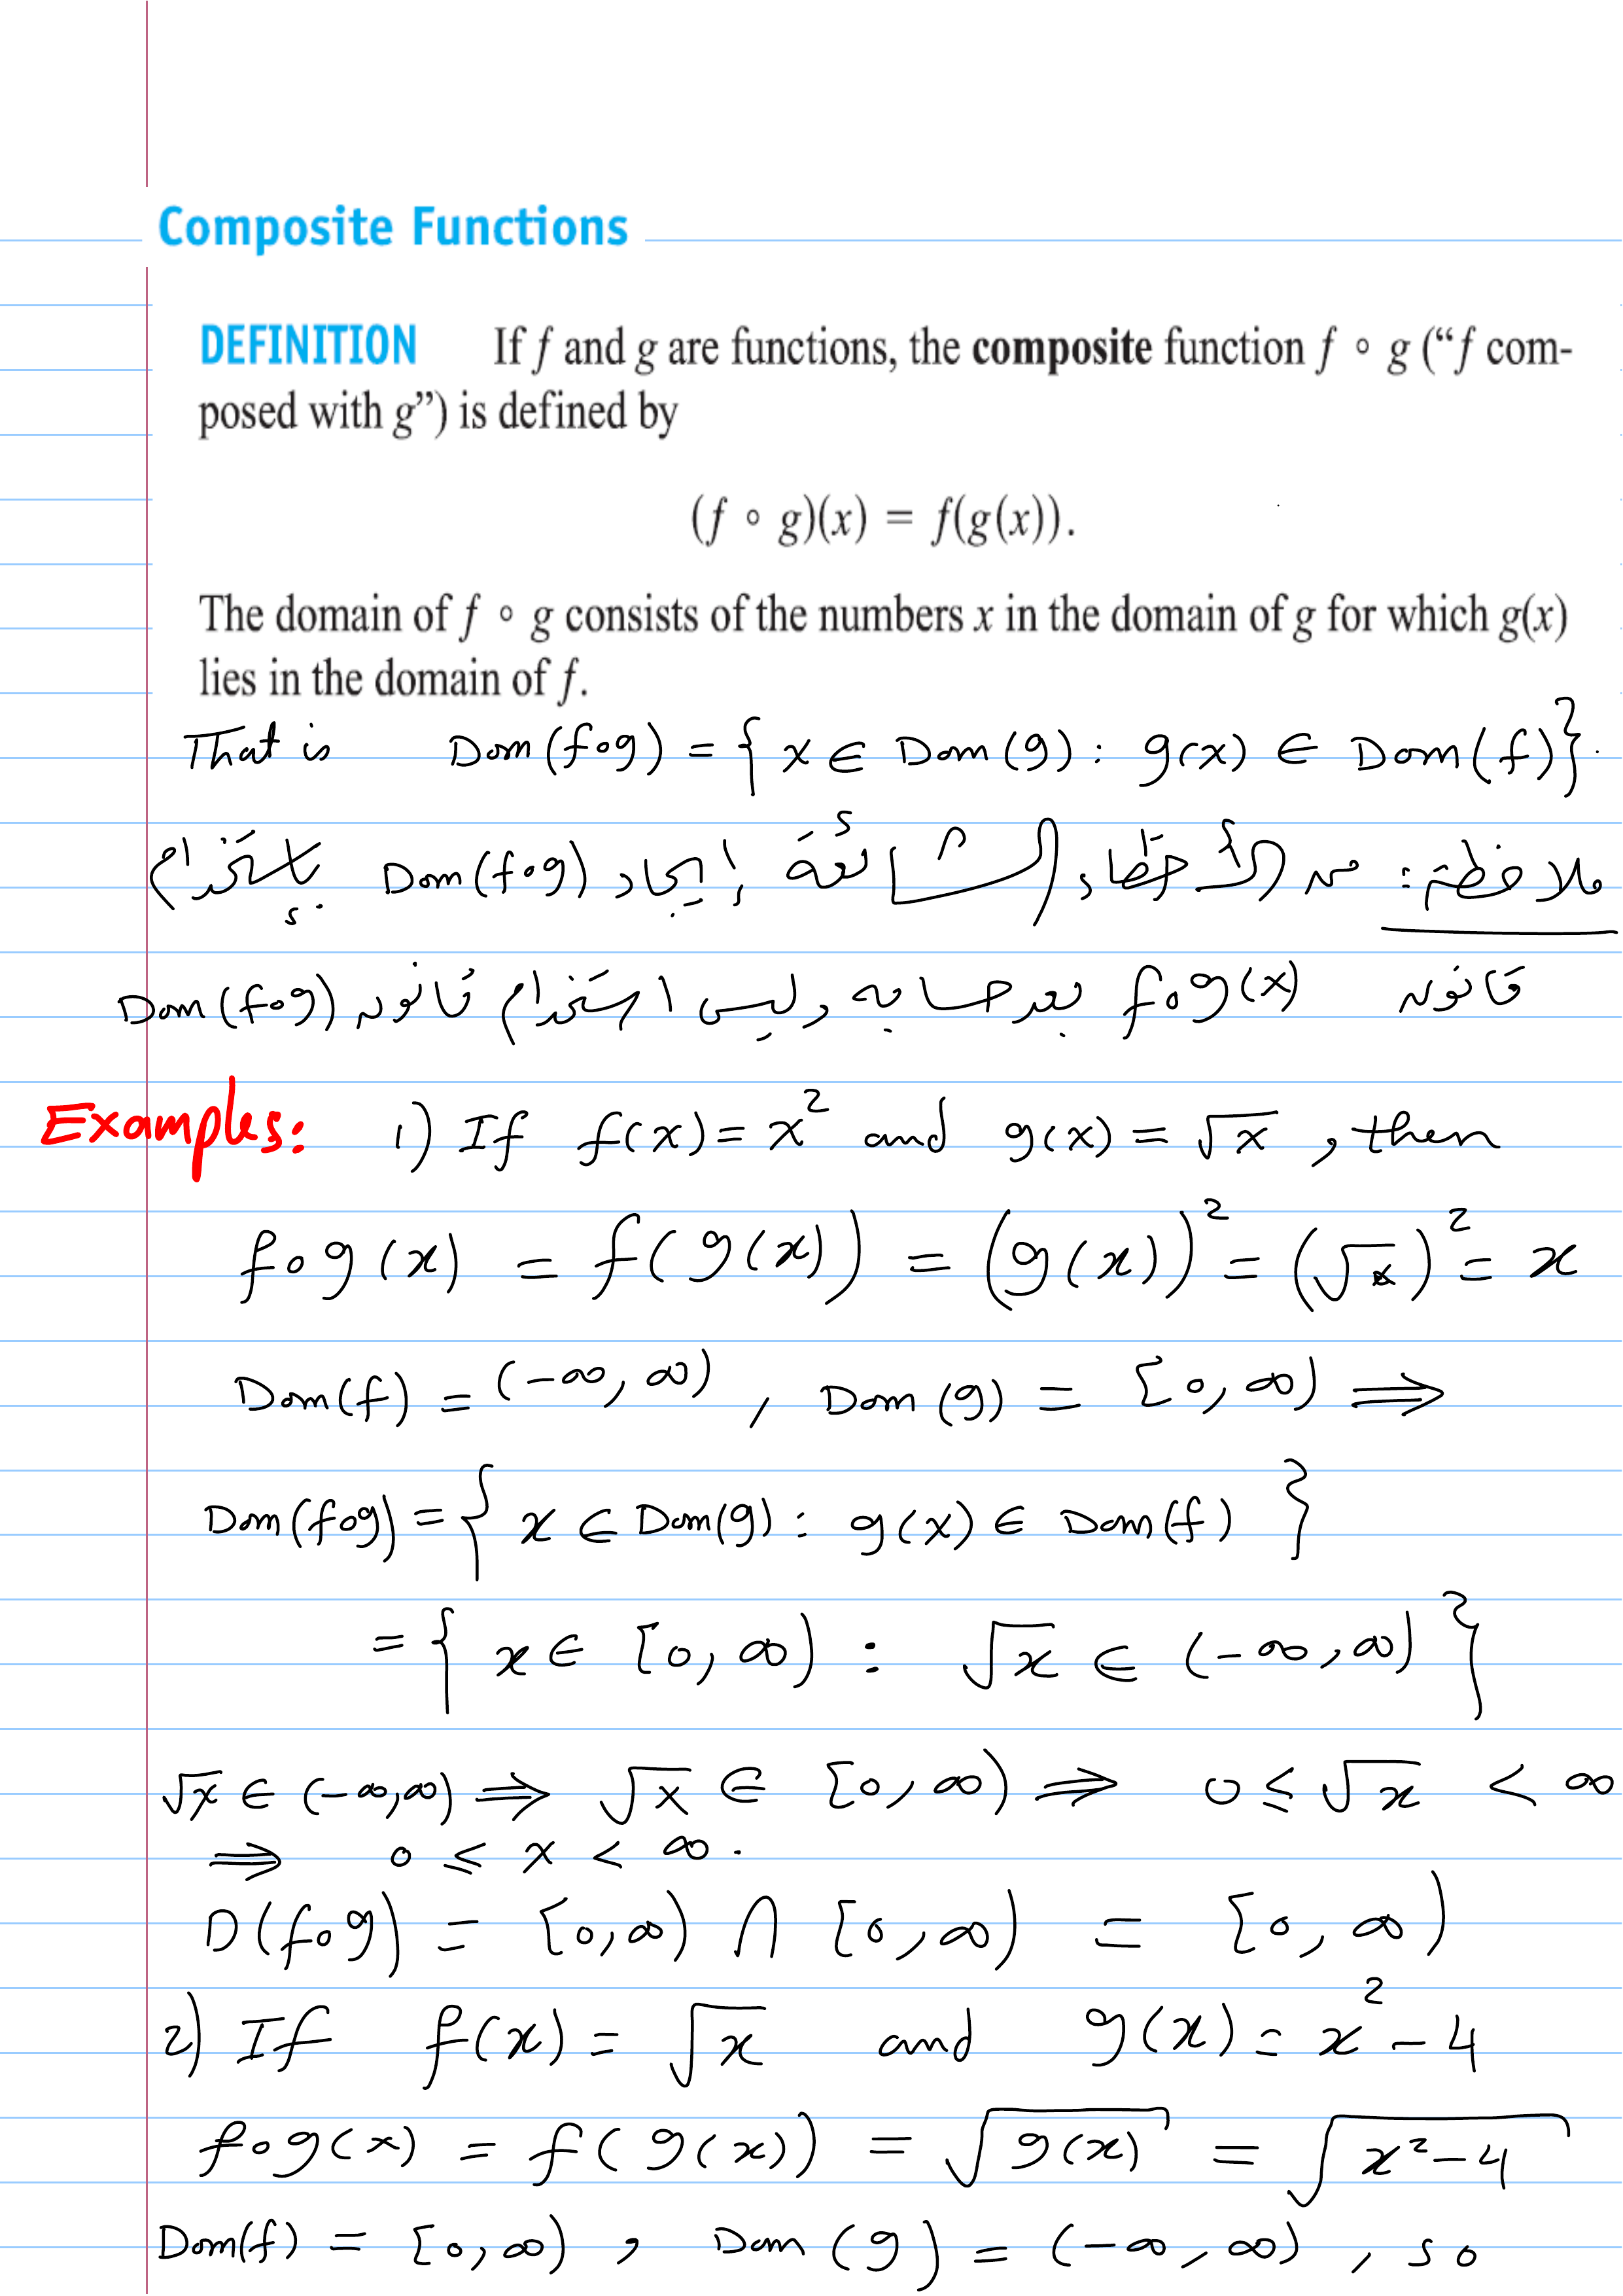 Composite Functions
DEFINITION If f and g are functions, the composite function f ∘ g (“f com-
posed with g”) is defined by
(f ∘ g)(x) = f(g(x)).
The domain of f ∘ g consists of the numbers x in the domain of g for which g(x)
lies in the domain of f.
That is Dom(fog) = { x ∈ Dom(g) : g(x) ∈ Dom(f)}.
ملاحظة: من الأخطاء الشائعة إيجاد Dom(fog) باستخدام
قانون fog(x) بعد حسابه وليس استخدام قانون Dom(fog)
Examples: 1) If f(x) = x² and g(x) = √x , then
fog(x) = f(g(x)) = (g(x))² = (√x)² = x
Dom(f) = (-∞, ∞) , Dom(g) = [0, ∞) ⟹
Dom(fog) = { x ∈ Dom(g) : g(x) ∈ Dom(f) }
= { x ∈ [0, ∞) : √x ∈ (-∞, ∞) }
√x ∈ (-∞,∞) ⟹ √x ∈ [0, ∞) ⟹ 0 ≤ √x < ∞
⟹ 0 ≤ x < ∞ .
D(fog) = [0,∞) ∩ [0,∞) = [0, ∞)
2) If f(x) = √x and g(x) = x² - 4
fog(x) = f(g(x)) = √g(x) = √x²-4
Dom(f) = [0,∞) , Dom(g) = (-∞, ∞) , so